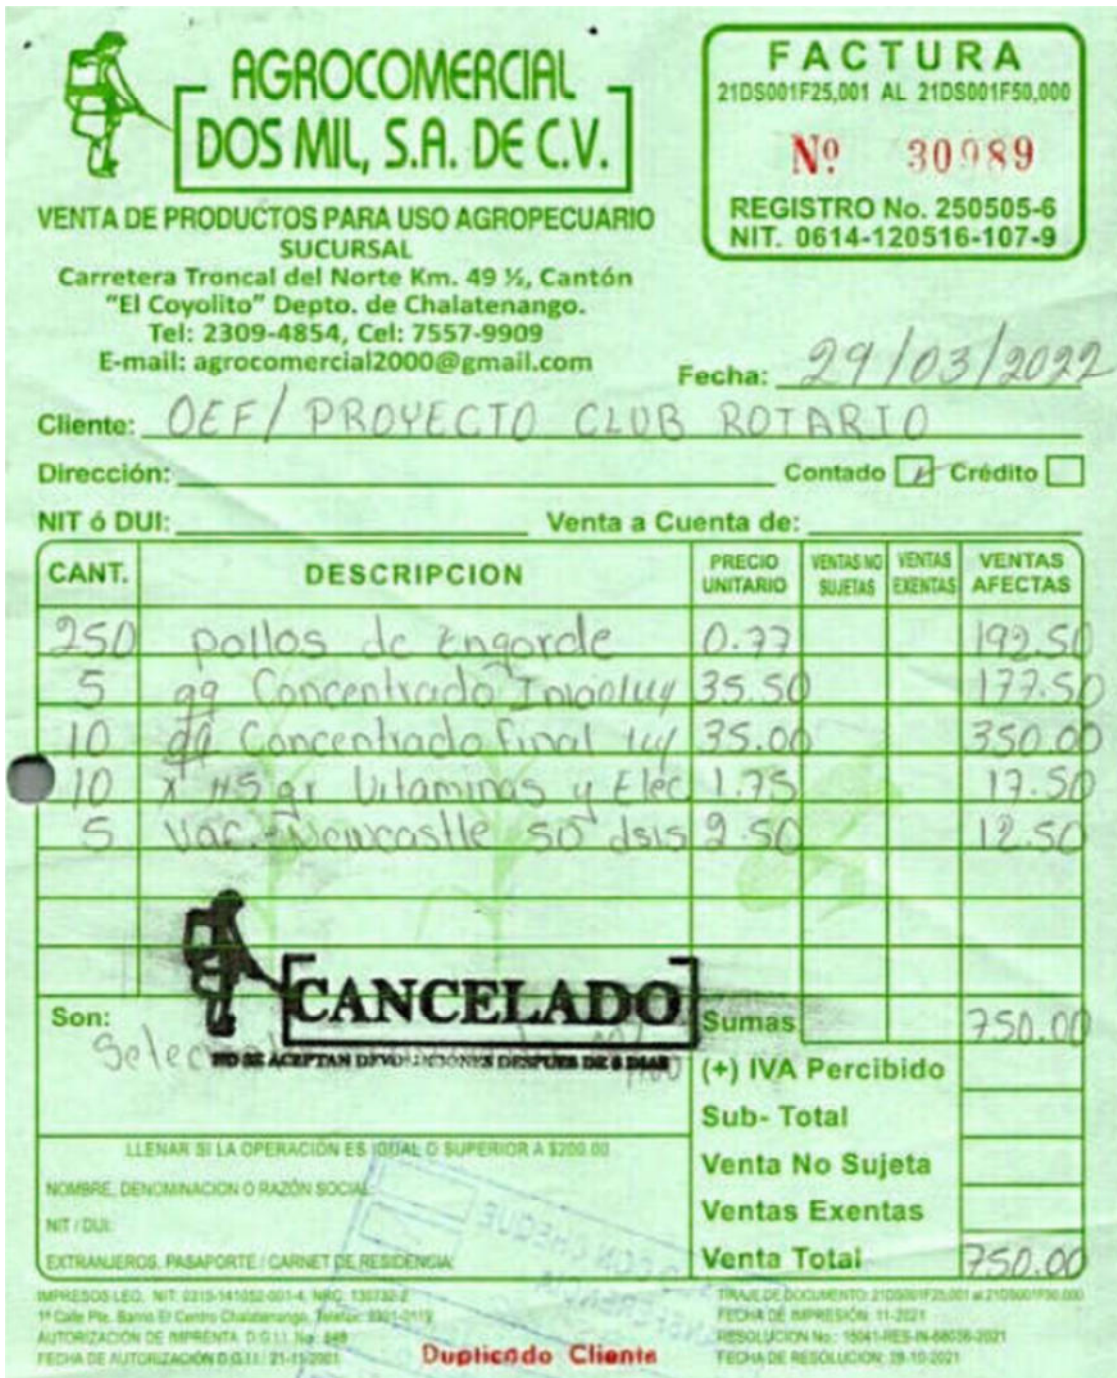 AGROCOMERCIAL
DOS MIL, S.A. DE C.V.
VENTA DE PRODUCTOS PARA USO AGROPECUARIO
SUCURSAL
Carretera Troncal del Norte Km. 49 ½, Cantón
"El Coyolito" Depto. de Chalatenango.
Tel: 2309-4854, Cel: 7557-9909
E-mail: agrocomercial2000@gmail.com
FACTURA
21DS001F25,001 AL 21DS001F50,000
Nº 30989
REGISTRO No. 250505-6
NIT. 0614-120516-107-9
Fecha: 29/03/2022
Cliente: OEF/ PROYECTO CLUB ROTARIO
Dirección: Contado Crédito
NIT ó DUI: Venta a Cuenta de:
CANT. DESCRIPCION PRECIO UNITARIO VENTAS NO SUJETAS VENTAS EXENTAS VENTAS AFECTAS
250 pollos de Engorde 0.77 192.50
5 qq Concentrado 35.50 177.50
10 qq Concentrado final 35.00 350.00
10 X 115 gr Vitaminas y Elec 1.75 17.50
5 Vac. Newcastle 50 dsis 2.50 12.50
CANCELADO
NO SE ACEPTAN DEVOLUCIONES DESPUES DE 5 DIAS
Son:
Sumas 750.00
(+) IVA Percibido
Sub- Total
Venta No Sujeta
Ventas Exentas
Venta Total 750.00
LLENAR SI LA OPERACIÓN ES IGUAL O SUPERIOR A $200.00
NOMBRE, DENOMINACION O RAZÓN SOCIAL:
NIT / DUI:
EXTRANJEROS, PASAPORTE / CARNET DE RESIDENCIA:
IMPRESOS LEO, NIT: 0315-141052-001-4, NRC: 130732-2
1ª Calle Pte. Barrio El Centro Chalatenango, Telefax: 2301-0119
AUTORIZACIÓN DE IMPRENTA D.G.I.I. No. 849
FECHA DE AUTORIZACIÓN D.G.I.I.: 21-11-2001
Duplicado Cliente
TIRAJE DE DOCUMENTO: 21DS001F25,001 al 21DS001F50,000
FECHA DE IMPRESIÓN: 11-2021
RESOLUCION No.: 15041-RES-IN-68036-2021
FECHA DE RESOLUCION: 28-10-2021